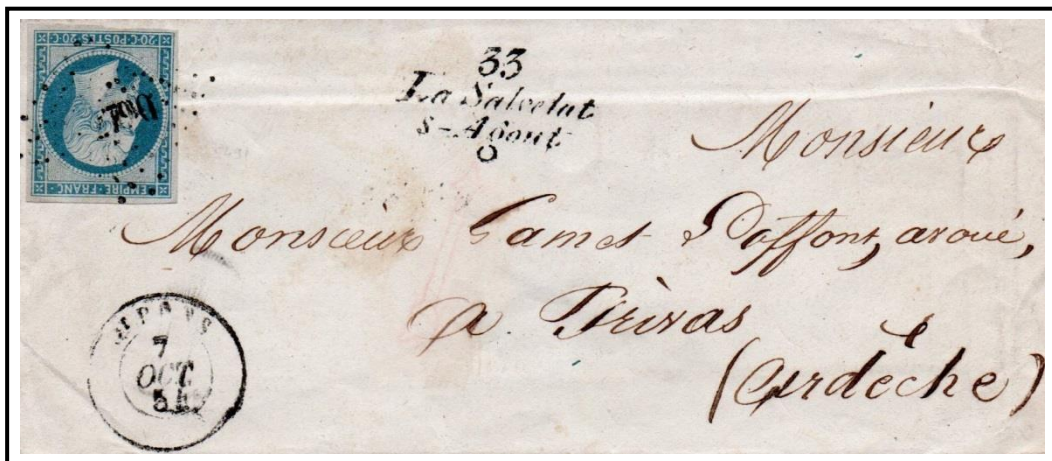 20·C·POSTES·20·C
EMPIRE·FRANC·
33
La Salvetat
s-Agout
Monsieur
Monsieur Gamet Daffont, avoué,
a Privas
(Ardèche)
ST PONS
7
OCT.
54